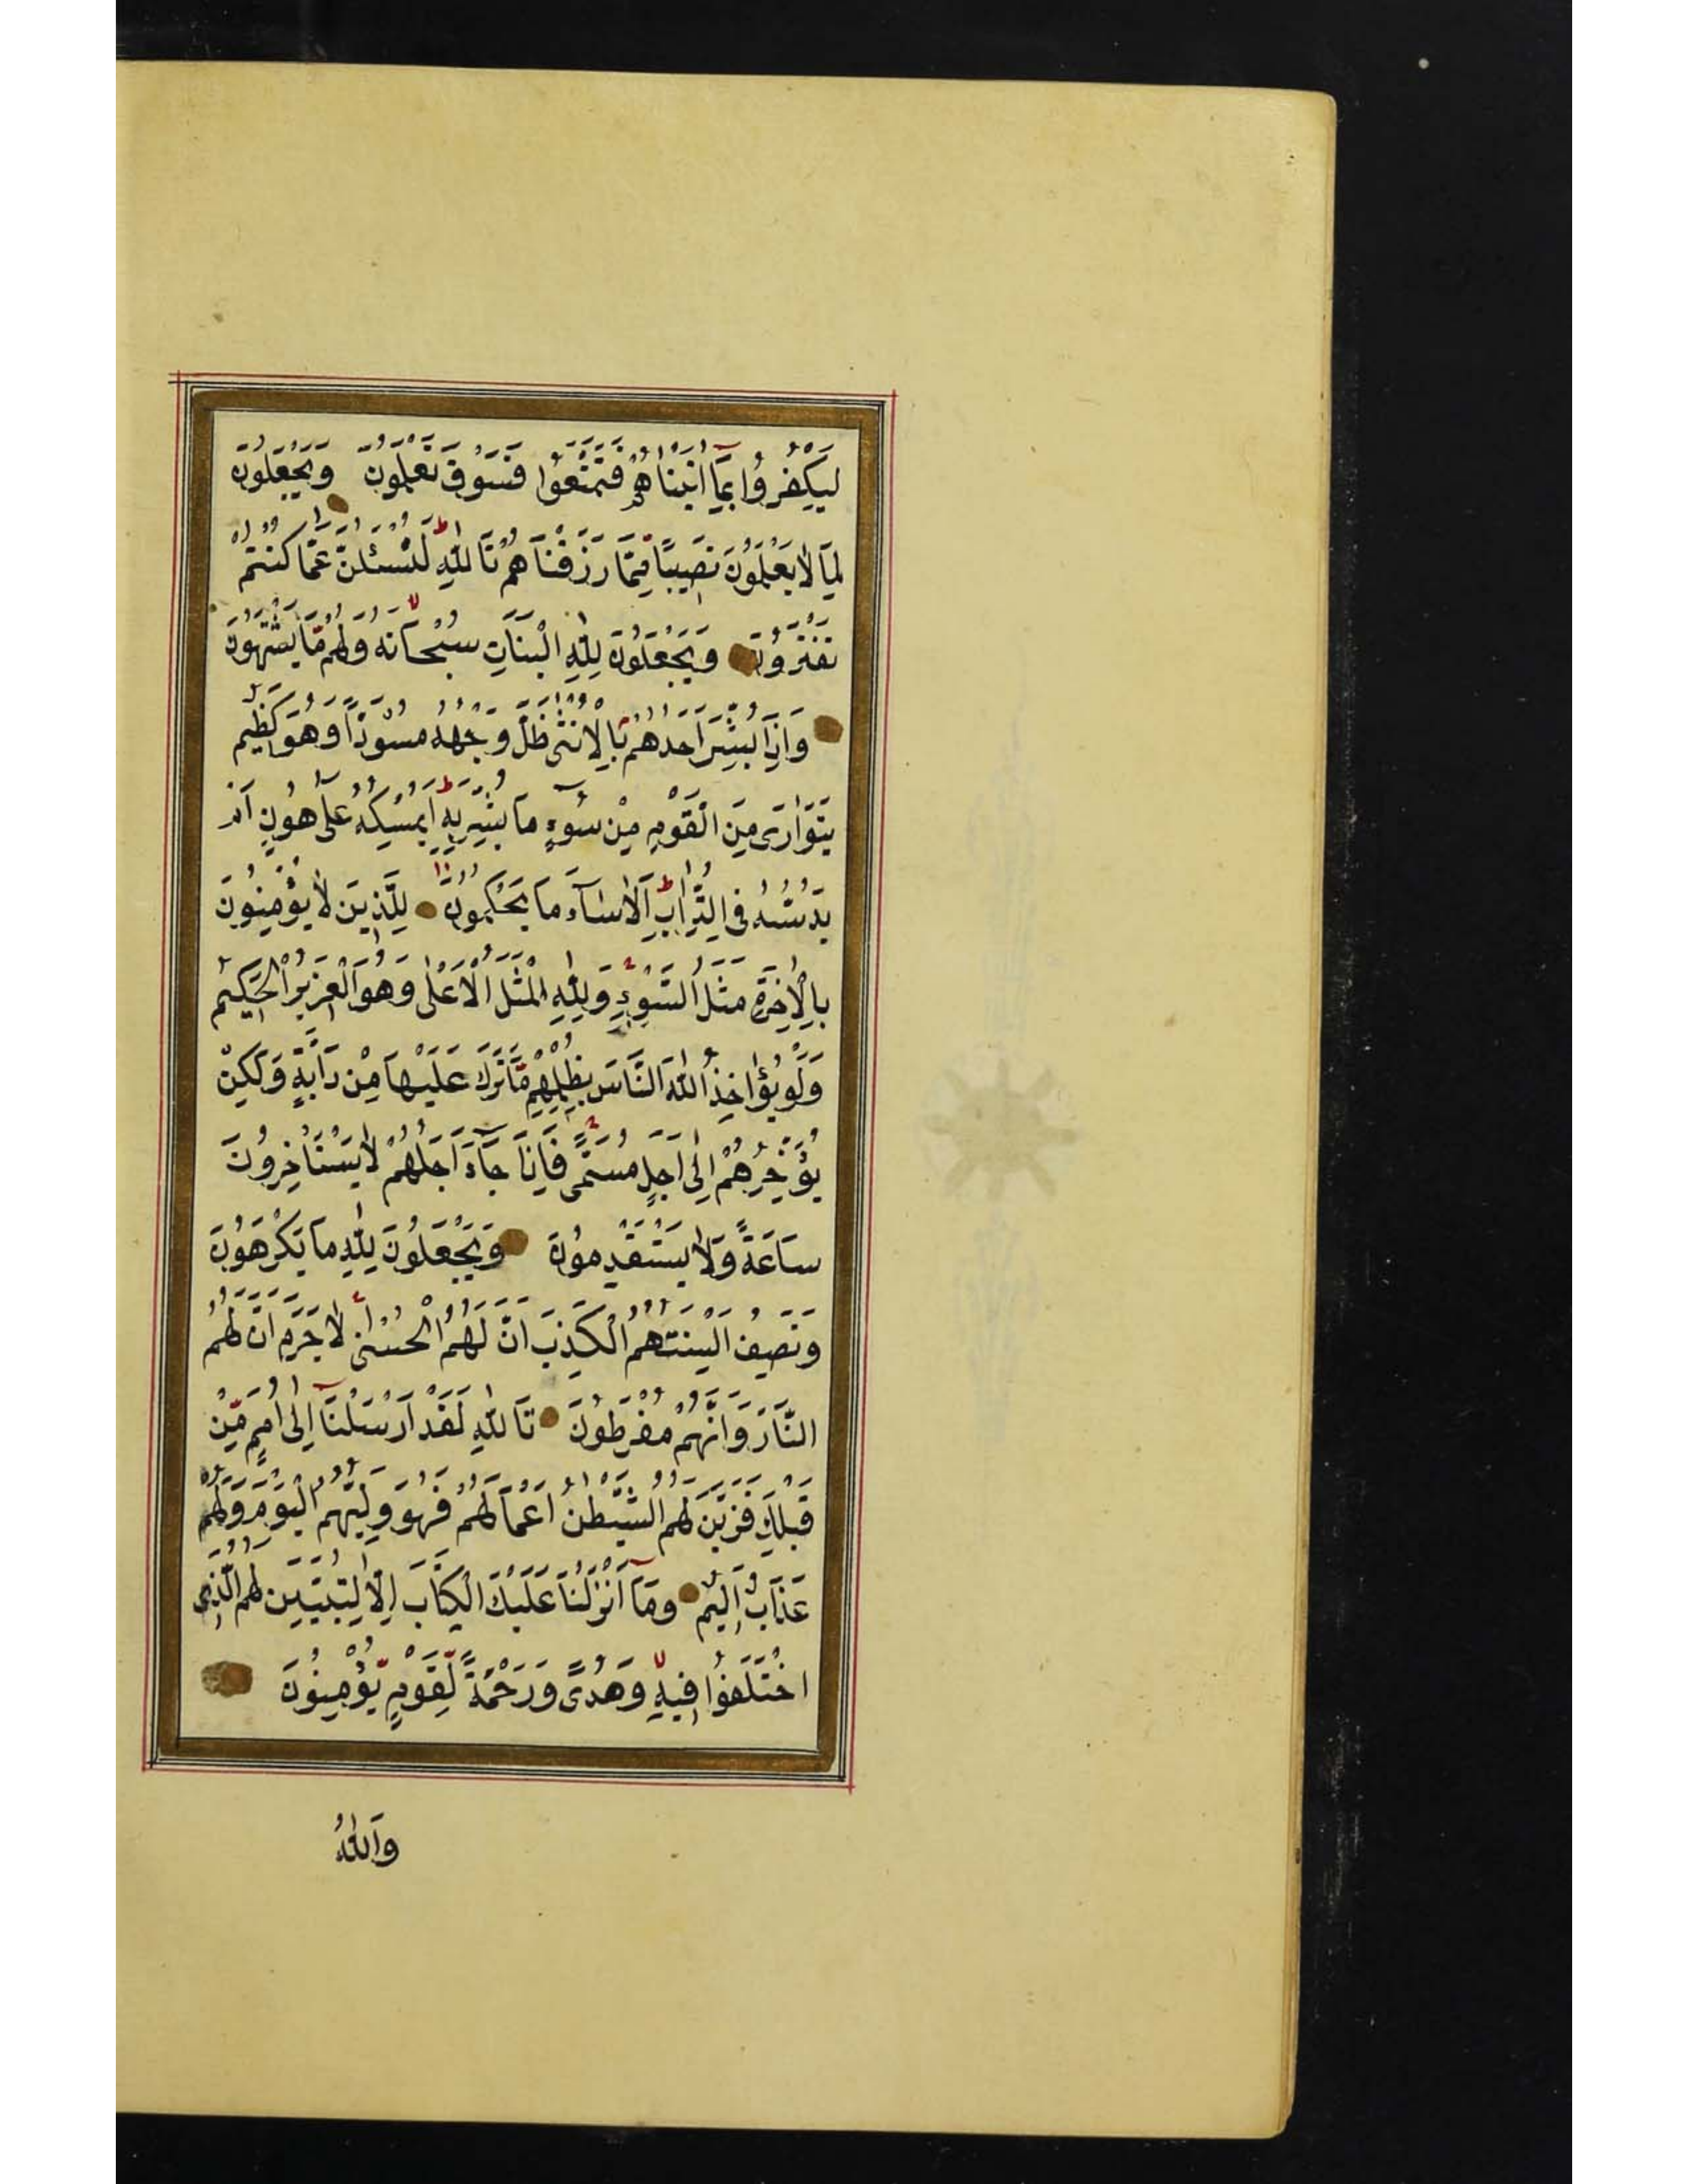 لِيَكْفُرُوا بِمَآ اٰتَيْنَاهُمْ فَتَمَتَّعُوا فَسَوْفَ تَعْلَمُونَ وَيَجْعَلُونَ
لِمَا لَا يَعْلَمُونَ نَصِيبًا مِمَّا رَزَقْنَاهُمْ تَاللّٰهِ لَتُسْـَٔلُنَّ عَمَّا كُنْتُمْ
تَفْتَرُونَ وَيَجْعَلُونَ لِلّٰهِ الْبَنَاتِ سُبْحَانَهُ وَلَهُمْ مَّا يَشْتَهُونَ
وَاِذَا بُشِّرَ اَحَدُهُمْ بِالْاُنْثٰى ظَلَّ وَجْهُهُ مُسْوَدًّا وَهُوَ كَظِيمٌ
يَتَوَارٰى مِنَ الْقَوْمِ مِنْ سُوٓءِ مَا بُشِّرَ بِهِ اَيُمْسِكُهُ عَلٰى هُونٍ اَمْ
يَدُسُّهُ فِى التُّرَابِ اَلَا سَآءَ مَا يَحْكُمُونَ لِلَّذِينَ لَا يُؤْمِنُونَ
بِالْاٰخِرَةِ مَثَلُ السَّوْءِ وَلِلّٰهِ الْمَثَلُ الْاَعْلٰى وَهُوَ الْعَزِيزُ الْحَكِيمُ
وَلَوْ يُؤَاخِذُ اللّٰهُ النَّاسَ بِظُلْمِهِمْ مَّا تَرَكَ عَلَيْهَا مِنْ دَآبَّةٍ وَلٰكِنْ
يُؤَخِّرُهُمْ اِلٰى اَجَلٍ مُسَمًّى فَاِذَا جَآءَ اَجَلُهُمْ لَا يَسْتَاْخِرُونَ
سَاعَةً وَلَا يَسْتَقْدِمُونَ وَيَجْعَلُونَ لِلّٰهِ مَا يَكْرَهُونَ
وَتَصِفُ اَلْسِنَتُهُمُ الْكَذِبَ اَنَّ لَهُمُ الْحُسْنٰى لَا جَرَمَ اَنَّ لَهُمُ
النَّارَ وَاَنَّهُمْ مُفْرَطُونَ تَاللّٰهِ لَقَدْ اَرْسَلْنَآ اِلٰى اُمَمٍ مِّنْ
قَبْلِكَ فَزَيَّنَ لَهُمُ الشَّيْطٰنُ اَعْمَالَهُمْ فَهُوَ وَلِيُّهُمُ الْيَوْمَ وَلَهُمْ
عَذَابٌ اَلِيمٌ وَمَآ اَنْزَلْنَا عَلَيْكَ الْكِتَابَ اِلَّا لِتُبَيِّنَ لَهُمُ الَّذِى
اخْتَلَفُوا فِيهِ وَهُدًى وَرَحْمَةً لِّقَوْمٍ يُّؤْمِنُونَ
وَاللّٰهُ